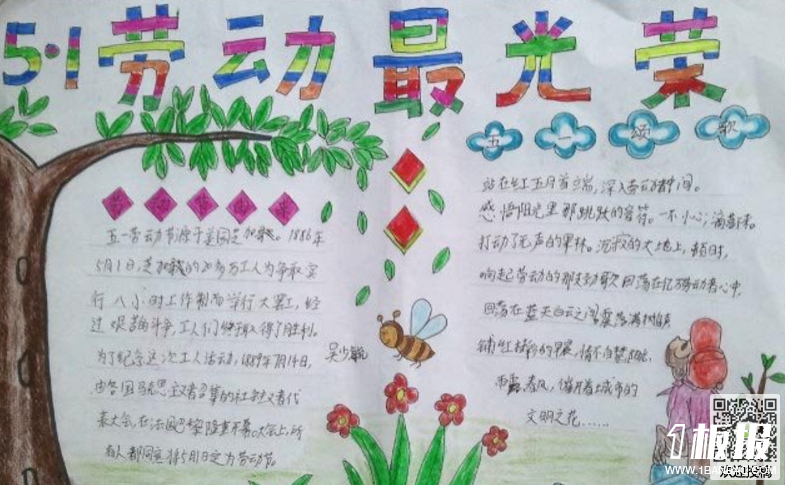 5·1劳动最光荣
五一颂歌
五一劳动节源于美国芝加哥。1886年
5月1日,芝加哥的20多万工人为争取实
行八小时工作制而举行大罢工,经
过艰苦斗争,工人们终于取得了胜利。
为了纪念这次工人活动,1889年7月14日,
由各国马克思主义者召集的社会主义者代
表大会,在法国巴黎隆重开幕。大会上,所
有人都同意将5月1日定为劳动节。
吴少敏
站在红五月首端,深入劳动期间。
感悟阳光里那跳跃的音符。一不小心,滴落
打动了无声的果林。沉寂的大地上,顿时,
响起劳动的那支动歌回荡在亿万劳动者心中,
回荡在蓝天白云之间
铺红
春风,催开着城市的
文明之花……
1板报
WWW.1BANBAO.COM
欢迎投稿